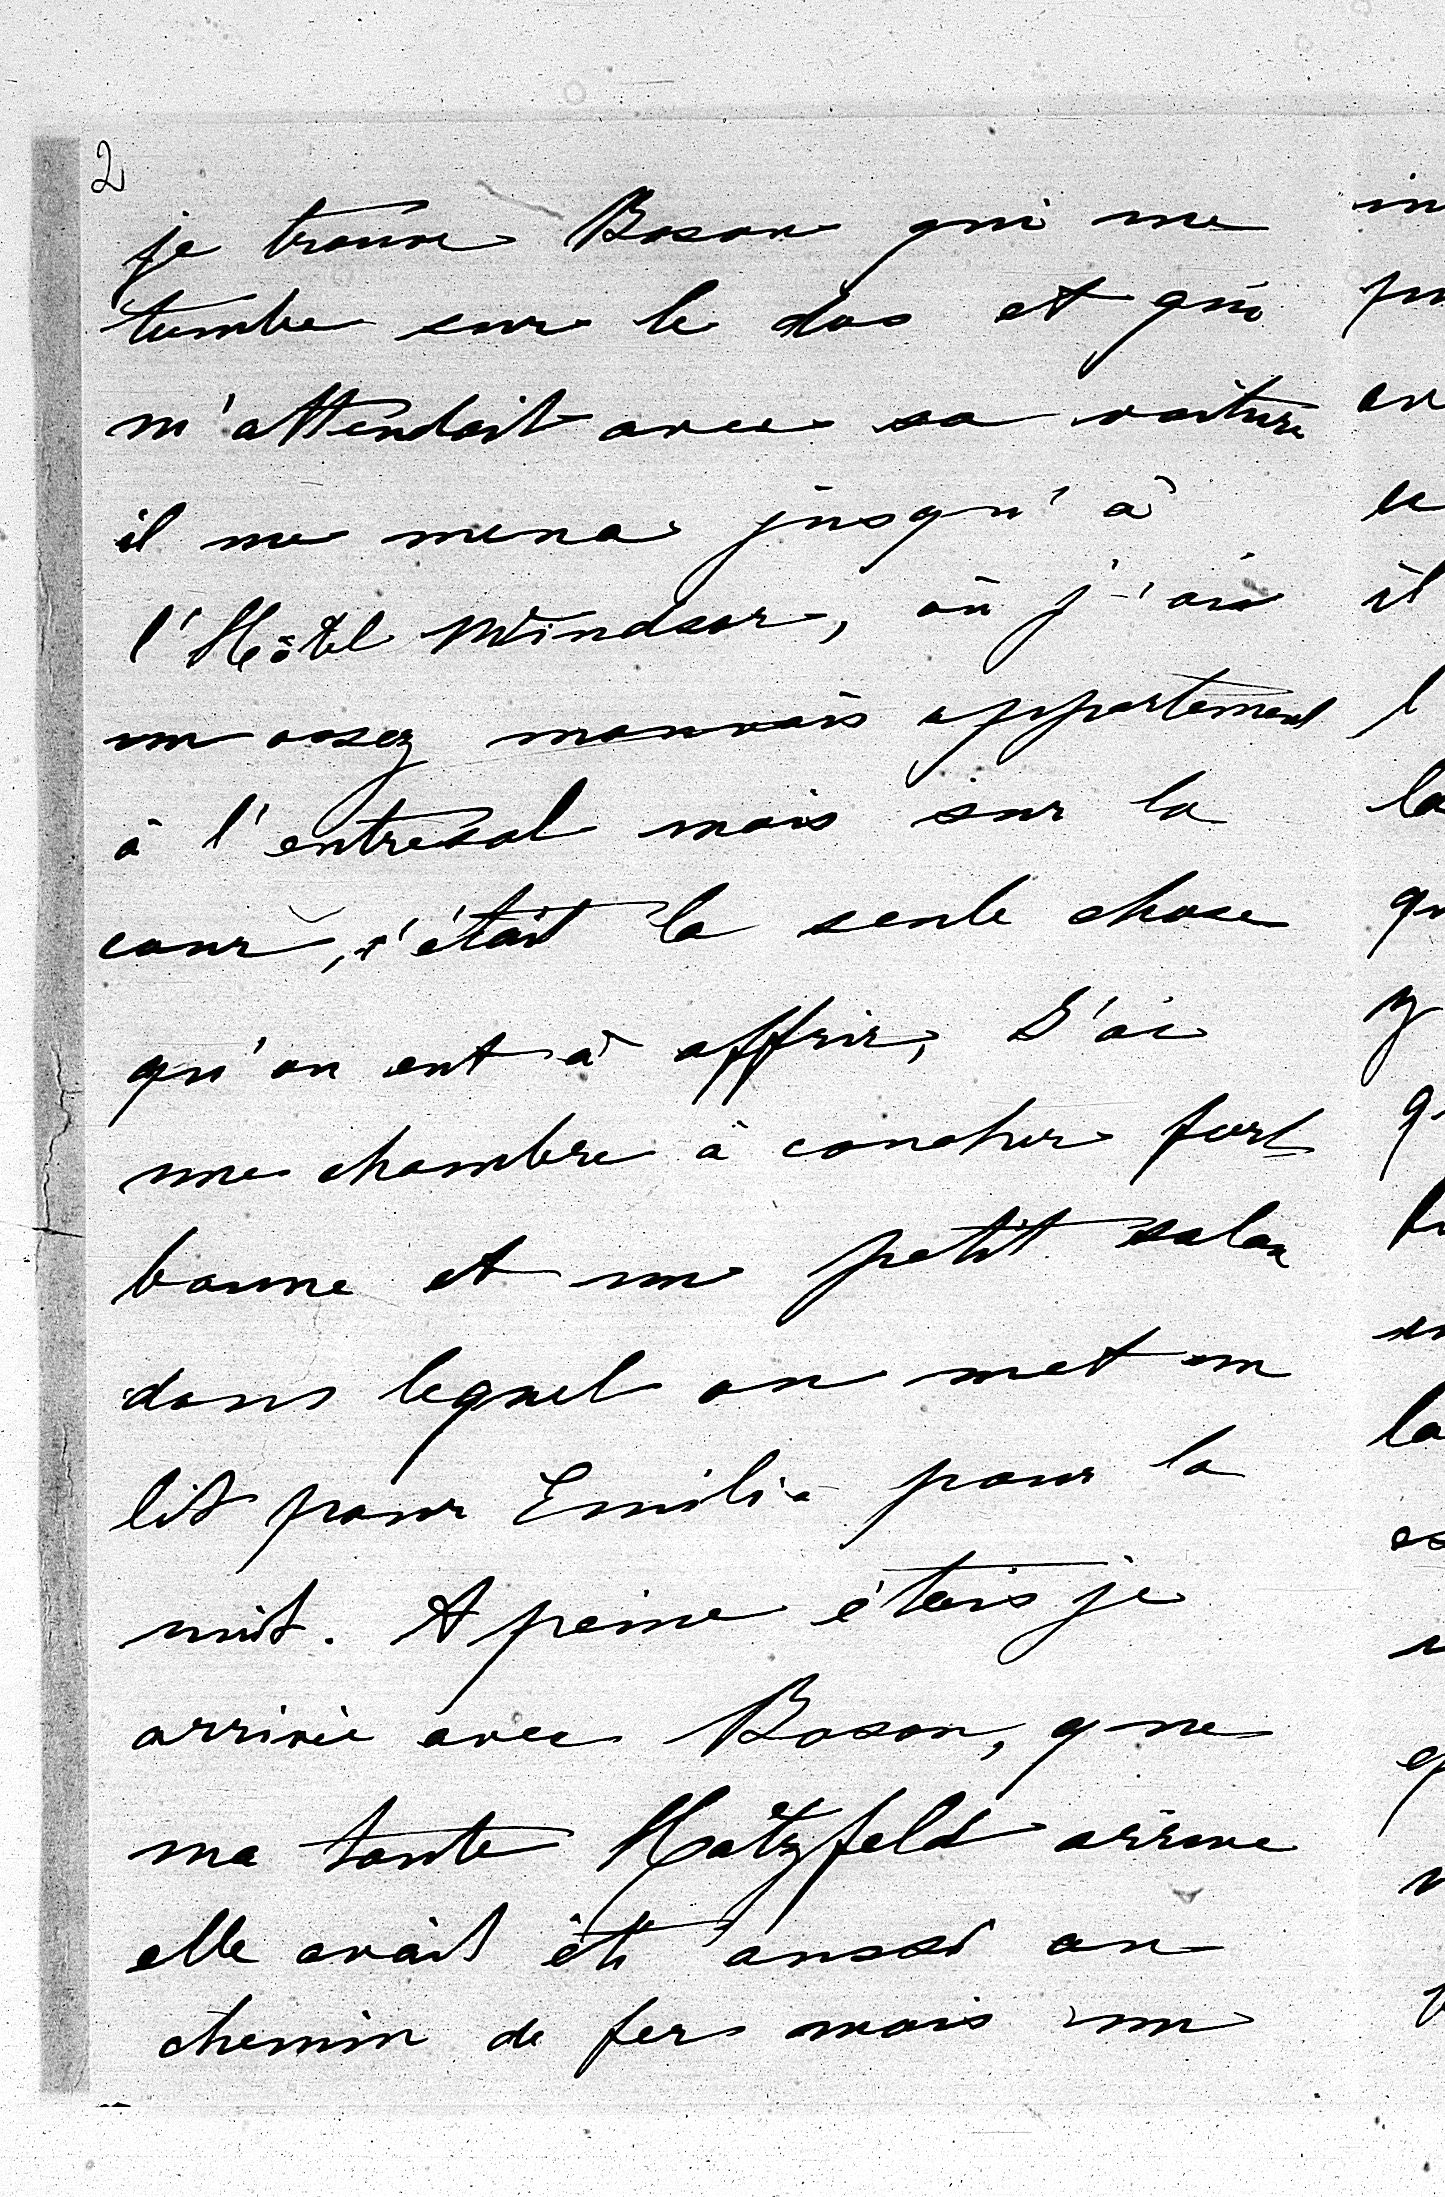 2
je trouve Boson qui me
tombe sur le dos et qui
m'attendait avec sa voiture
il me mena jusqu'à
l'Hôtel Windsor, où j'ai
un assez mauvais appartement
à l'entresol mais sur la
cour, c'était la seule chose
qu'on eut à offrir, J'ai
une chambre à coucher fort
bonne et un petit salon
dans lequel on met un
lit pour Emilia pour la
nuit. A peine étais je
arrivée avec Boson, que
ma tante Hatzfeld arrive
elle avait été aussi au
chemin de fer mais un